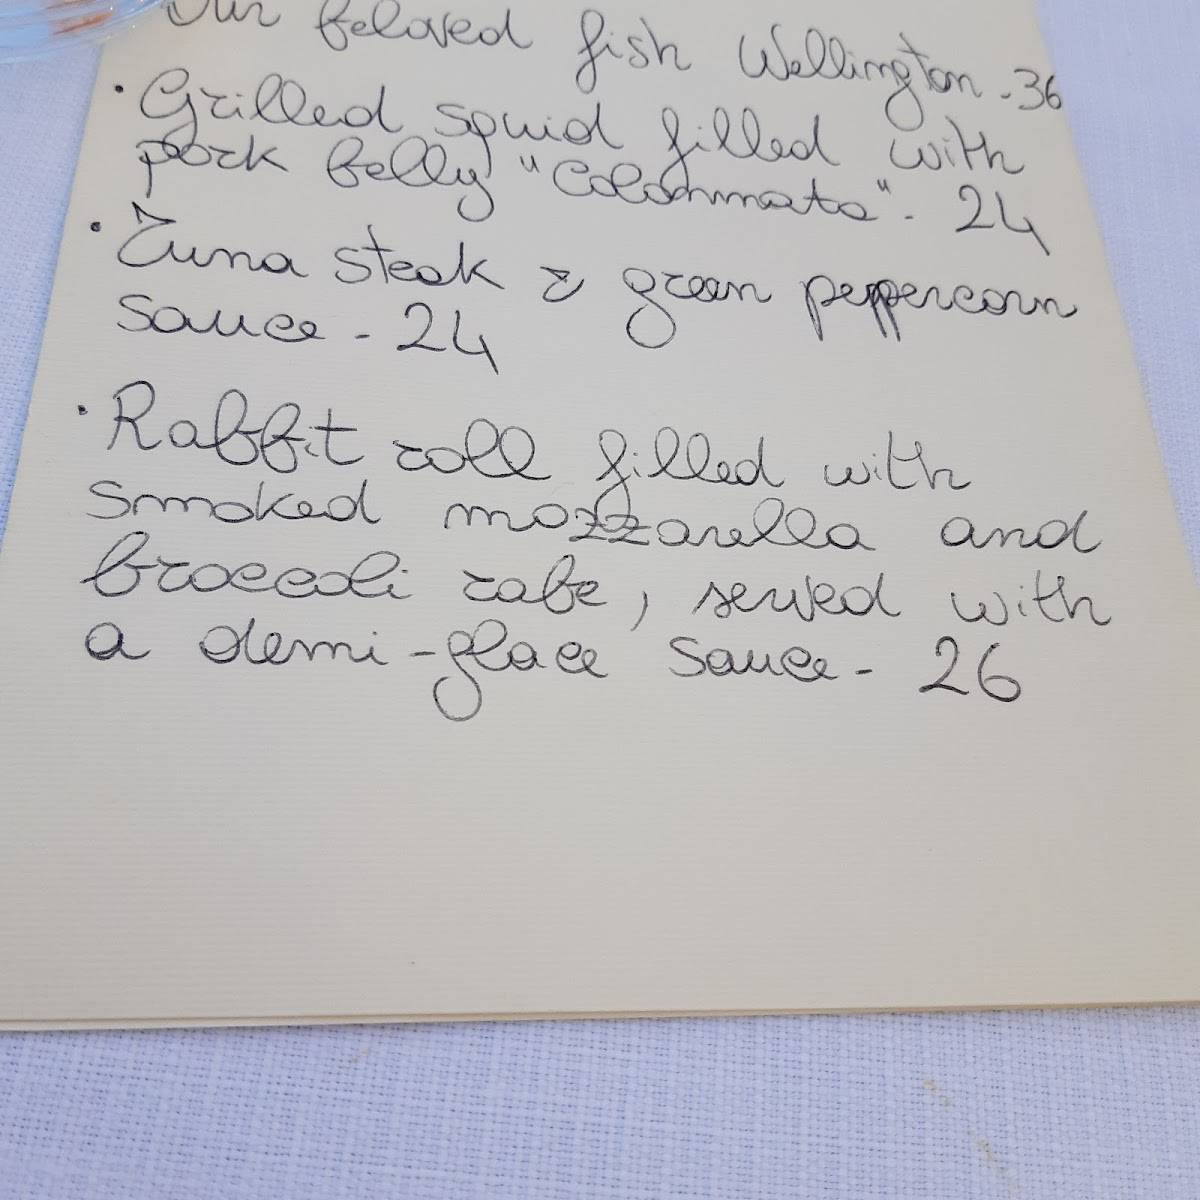 Our beloved fish Wellington - 36
· Grilled squid filled with
pork belly "Colonnata" - 24
· Tuna steak & green peppercorn
sauce - 24
· Rabbit roll filled with
smoked mozzarella and
broccoli rabe, served with
a demi-glace sauce - 26